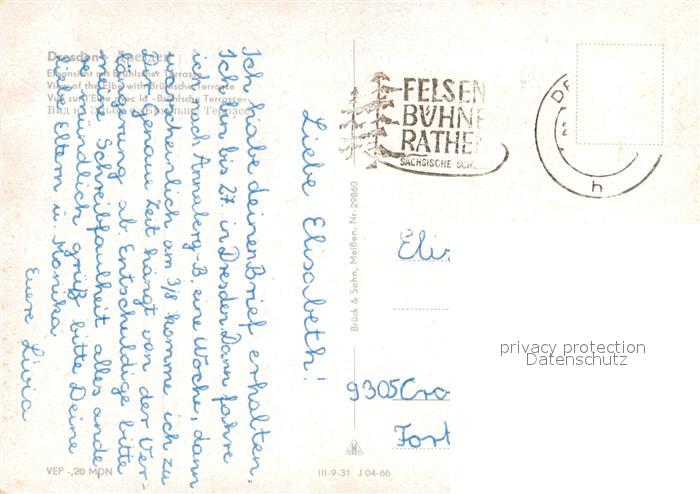 Dresden
Elbansicht mit Brühlscher Terrasse
View of the Elbe with Brühlsche Terrasse
Vue sur l'Elbe avec la «Brühlsche Terrasse»
Вид на Эльбу с Терассе
Liebe Elisabeth!
Ich habe deinen Brief erhalten.
Ich bin bis 27. in Dresden. Dann fahre
ich nach Annaberg-B. eine Woche, dann
wahrscheinlich am 3/8 komme ich zu
Dir, genaue Zeit hängt von der Ver-
längerung ab. Entschuldige bitte
meine Schreibfaulheit alles ande-
re mündlich grüß bitte Deine
liebe Eltern u. Monika
Euere Livia
VEP -,20 MDN
Brück & Sohn, Meißen, Nr. 29860
III-9-31 J 04-66
FELSEN
BÜHNE
RATHEN
SÄCHSISCHE
h
9305 Cro
privacy protection
Datenschutz